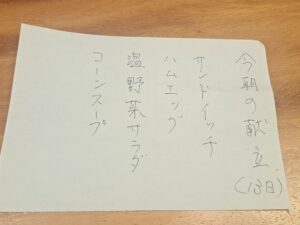 今朝の献立(13日)
サンドイッチ
ハムエッグ
温野菜サラダ
コーンスープ